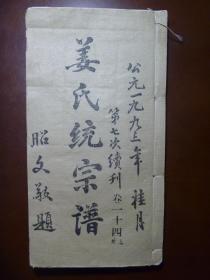 公元一九九三年 桂月
第七次續刊 卷一十四之
姜氏统宗谱
昭文敬題